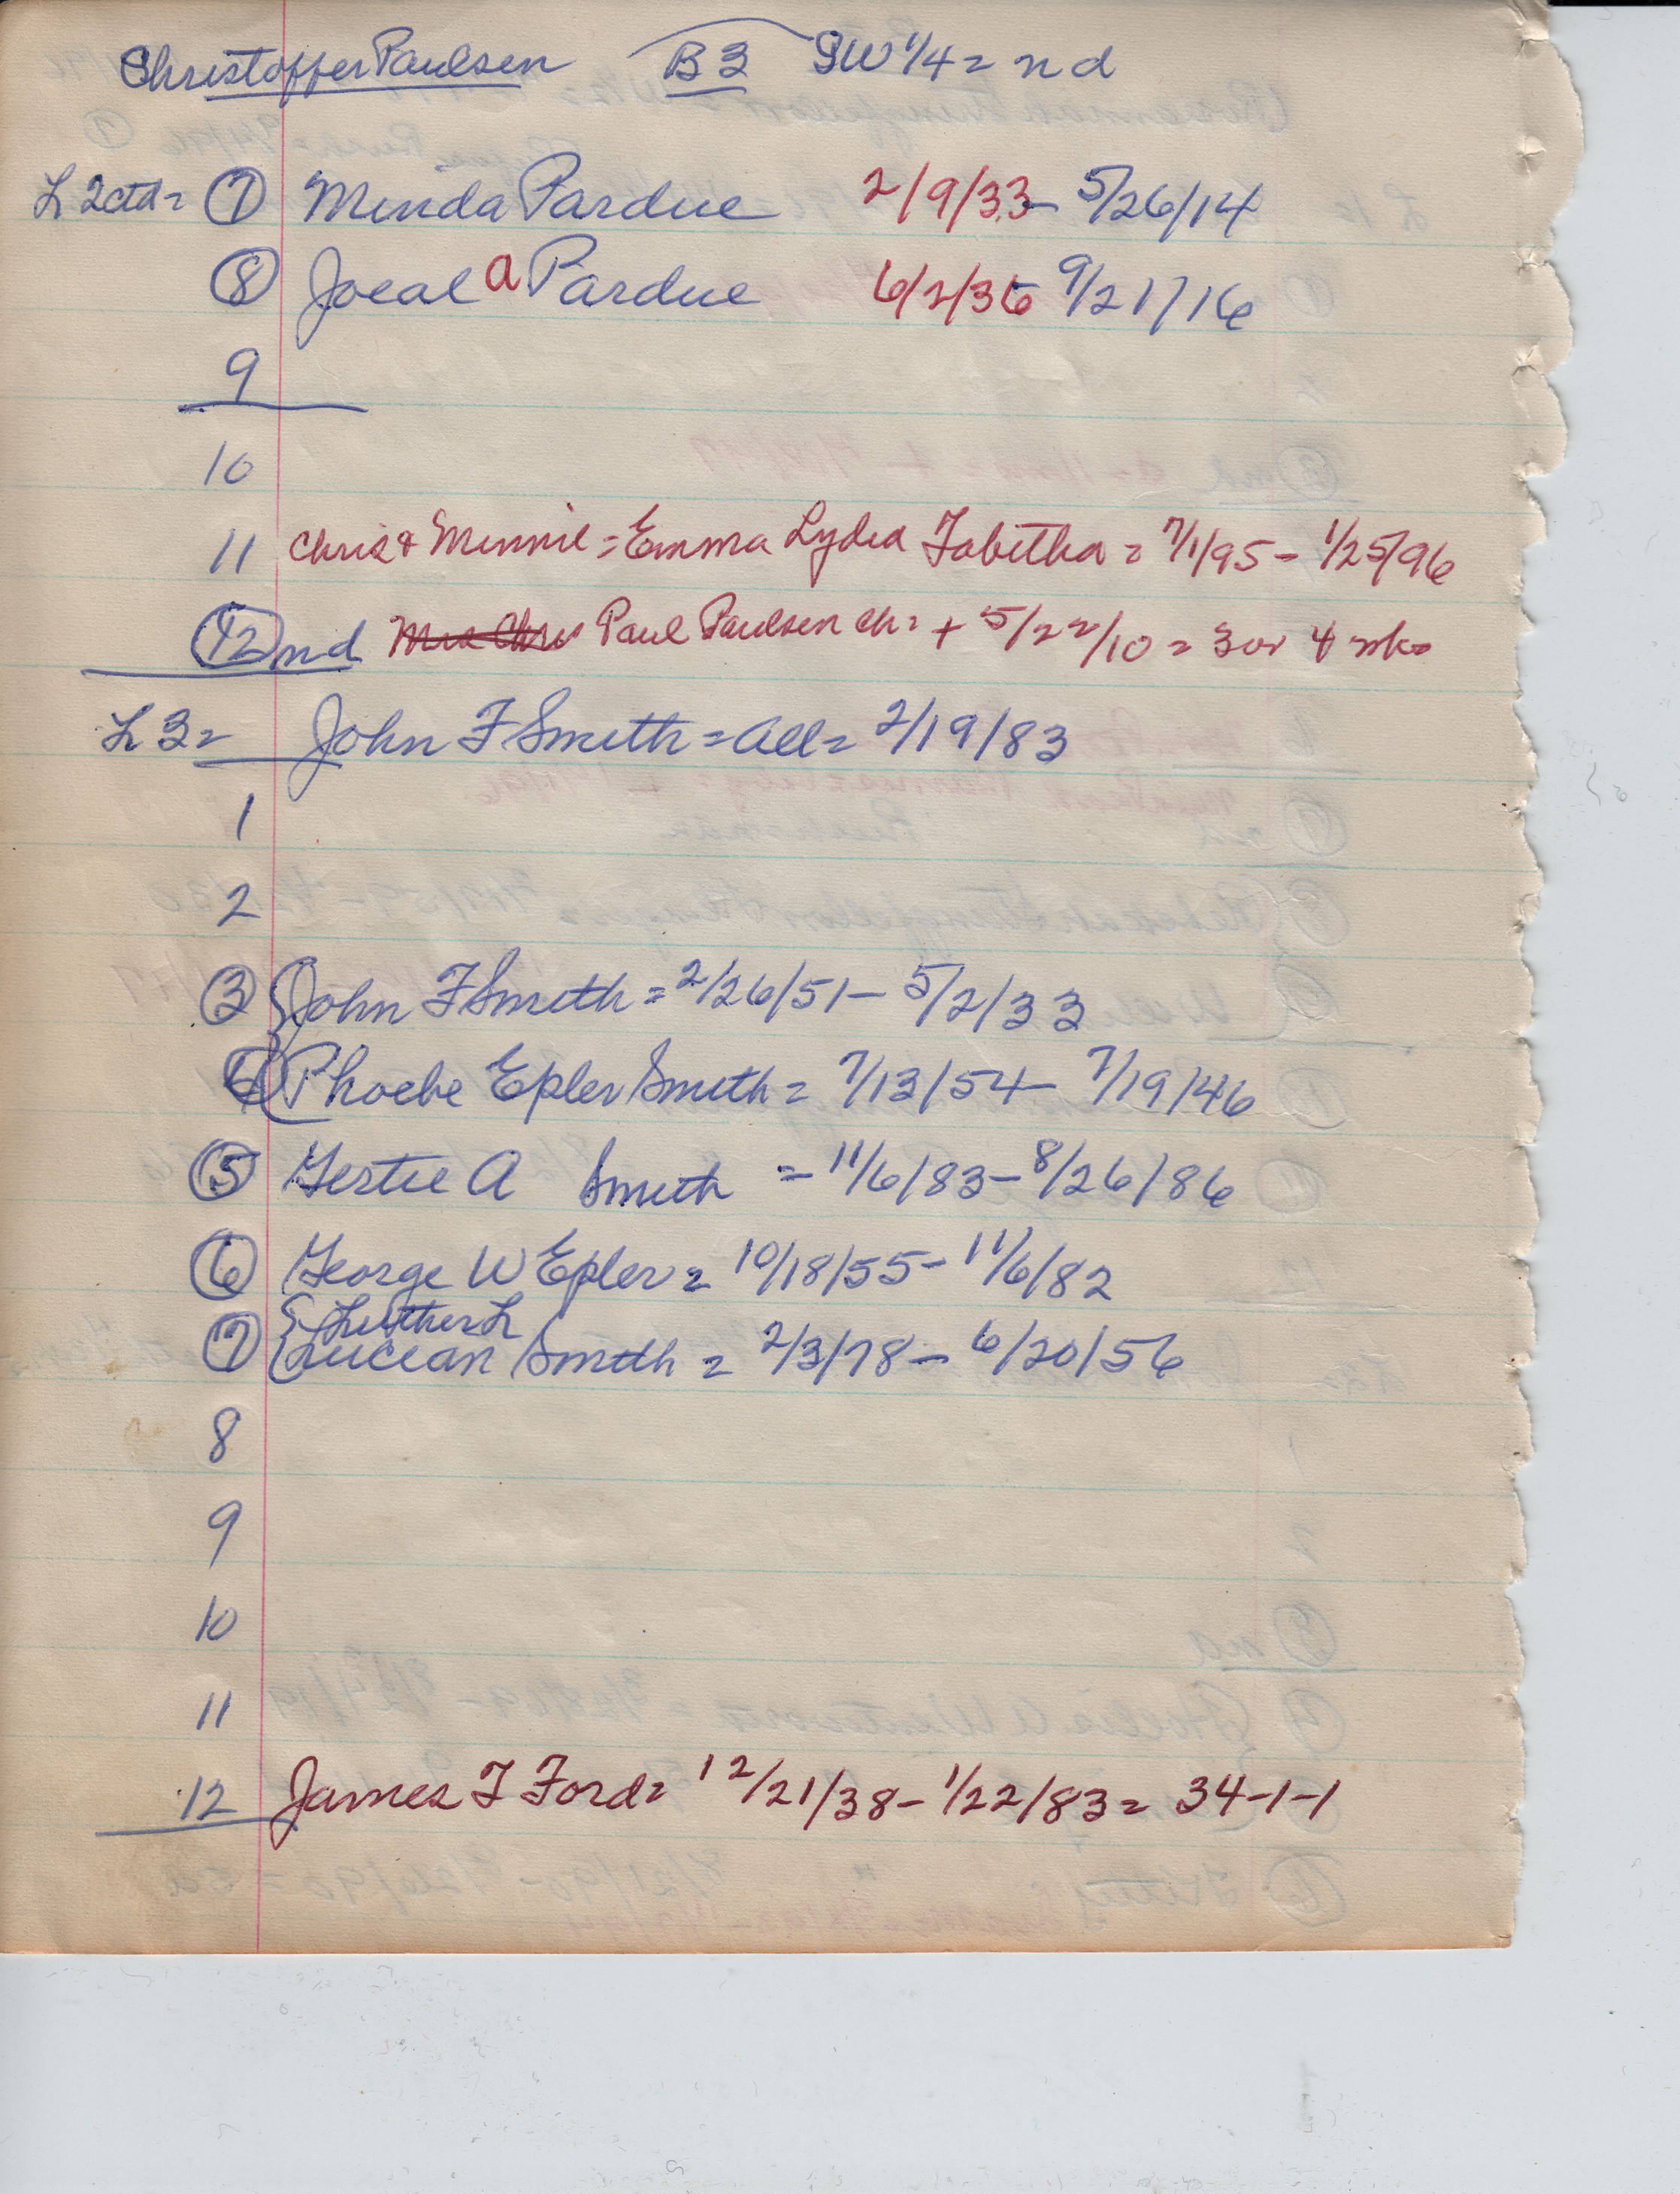 Christoffer Paulsen B3 SW 1/4 = nd
L 2ctd = 7 Minda Pardue 2/9/33 - 5/26/14
8 Joeal A Pardue 6/2/36 9/21/16
9
10
11 Chris & Minnie = Emma Lydia Tabitha = 7/1/95 - 1/25/96
12 nd Mrs Chris Paul Paulsen ch = + 5/22/10 = 3 or 4 wks
L 3 = John F Smith = All = 2/19/83
1
2
3 John F Smith = 2/26/51 - 5/2/33
4 Phoebe Epler Smith = 7/13/54 - 7/19/46
5 Gertie A Smith = 11/6/83 - 8/26/86
6 George W Epler = 10/18/55 - 11/6/82
Luther L
7 Lucian Smith = 2/3/78 - 6/20/56
8
9
10
11
12 James F Ford = 12/21/38 - 1/22/83 = 34-1-1